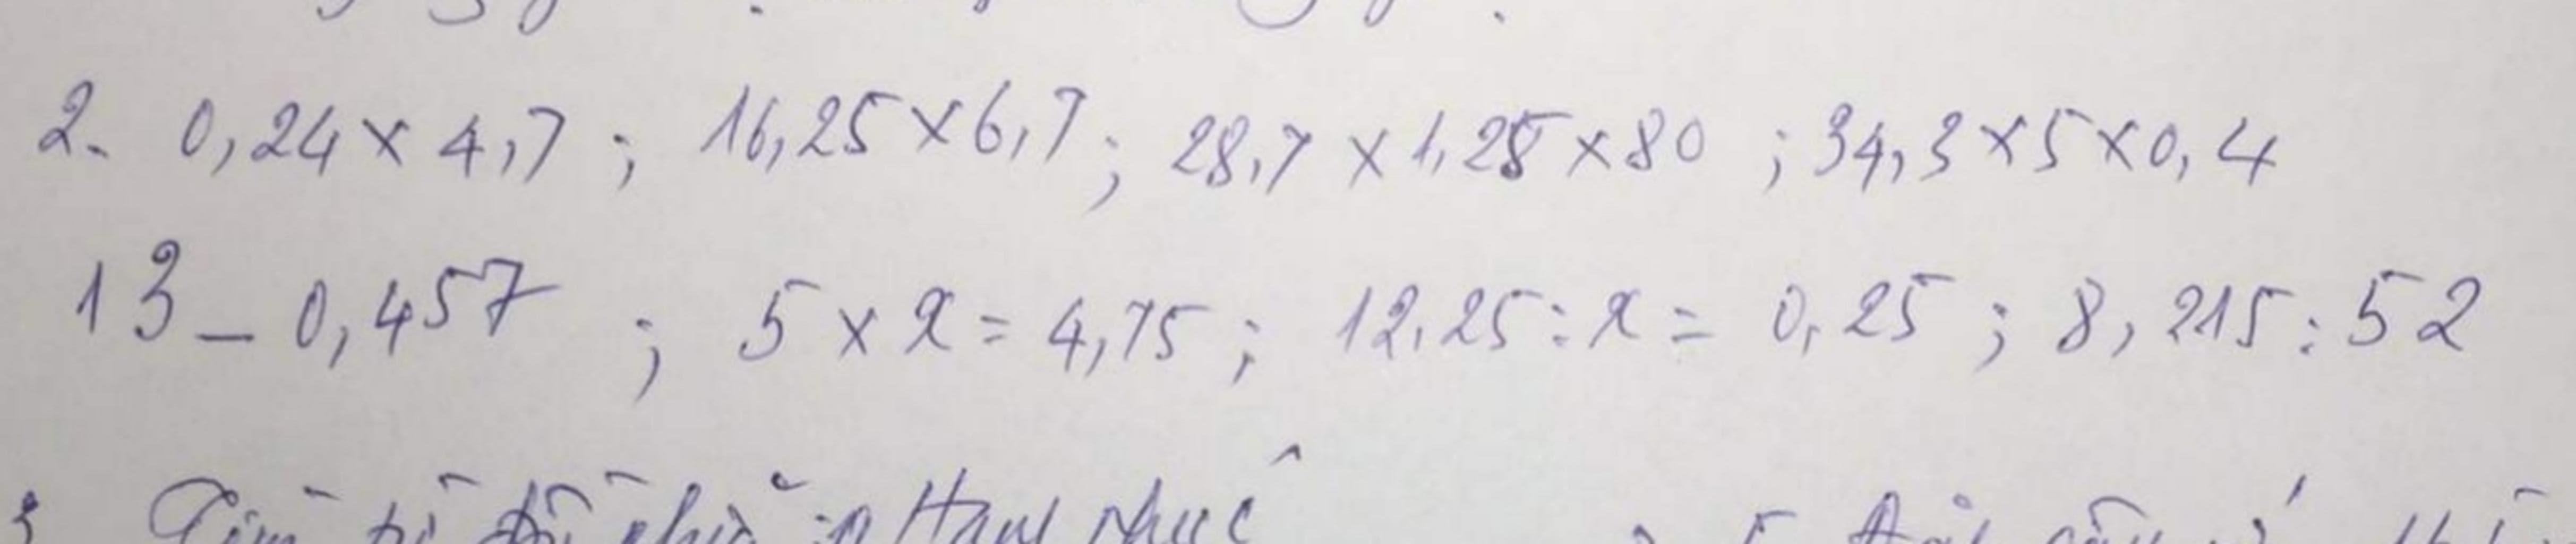 2. 0,24 x 4,7 ; 16,25 x 6,7 ; 28,7 x 1,25 x 80 ; 34,3 x 5 x 0,4
13 - 0,457 ; 5 x x = 4,75 ; 12,25 : x = 0,25 ; 8,215 : 52
3 Tìm từ